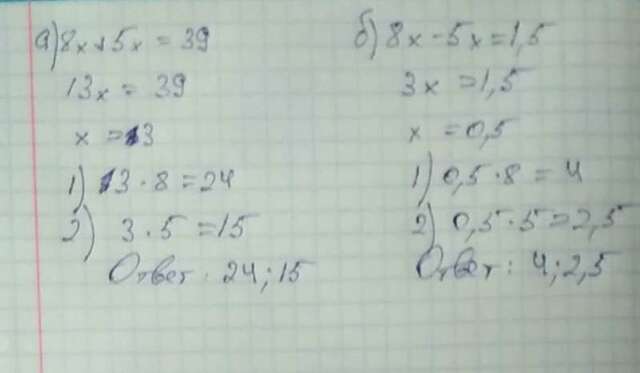 а) 8x+5x = 39
13x = 39
x = 3
1) 3 · 8 = 24
2) 3 · 5 = 15
Ответ: 24; 15
б) 8x - 5x = 1,5
3x = 1,5
x = 0,5
1) 0,5 · 8 = 4
2) 0,5 · 5 = 2,5
Ответ: 4; 2,5